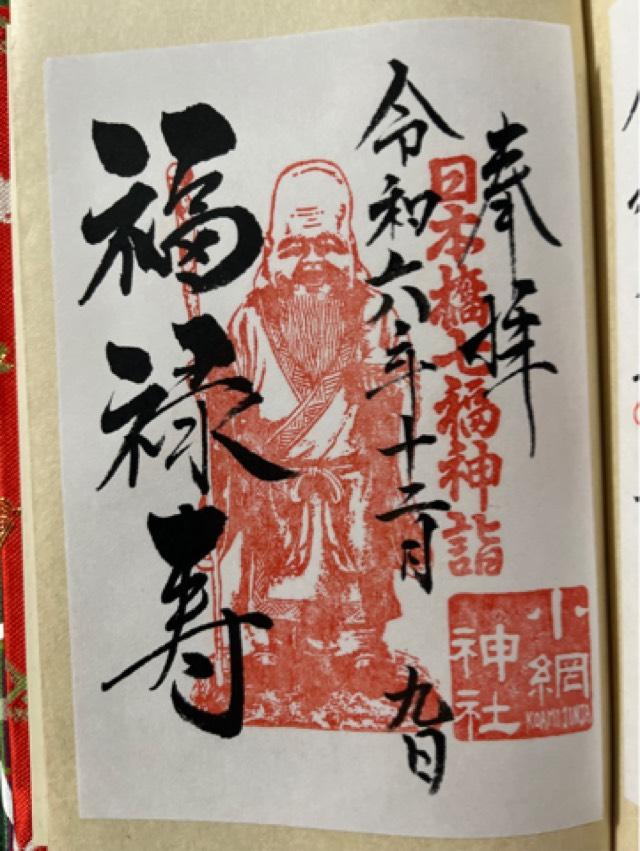 奉拝
日本橋七福神詣
小網
神社
KOAMI JINJA
令和六年十二月九日
福禄寿